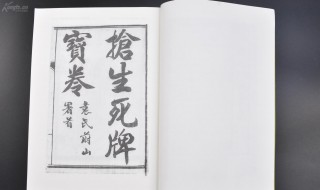 搶生死牌
寶卷
袁氏蔚山
署耑